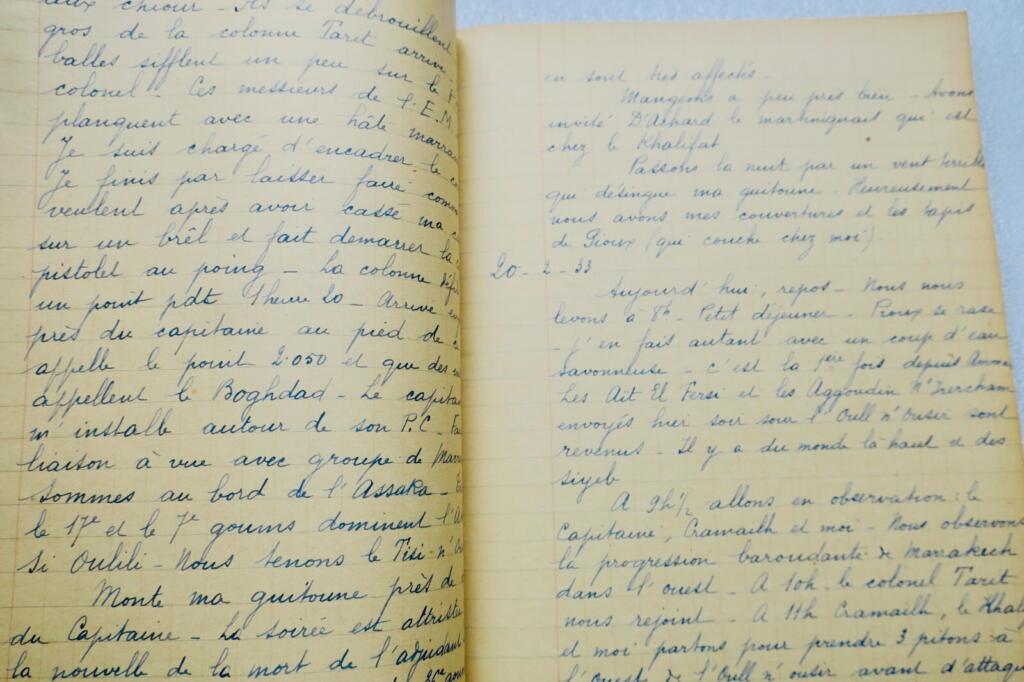 aux chiour - Ils se débrouillent
gros de la colonne Tarit arrive
balles sifflent un peu sur le
colonel - Ces messieurs de l'E.M.
planquent avec une hâte
Je suis chargé d'encadrer le
Je finis par laisser faire
veulent après avoir cassé ma
sur un brêl et fait démarrer la
pistolet au poing - La colonne
un point pdt 1 heure 20 - Arrive
près du capitaine au pied de
appelle le point 2.050 et que des
appellent le Boghdad - Le
m'installe autour de son P.C -
liaison à vue avec groupe de
sommes au bord de l'Assaka -
le 17e et le 7e goums dominent
Si Oulili - Nous tenons le Tisi-n'
Monte ma guitoune près de
du Capitaine - La soirée est
la nouvelle de la mort de l'adjudant
en sont très affectés -
Mangeons a peu près bien - Avons
invité D'Achard le martiniquais qui est
chez le Khalifat
Passons la nuit par un vent terrible
qui désingue ma guitoune - Heureusement
nous avons mes couvertures et les tapis
de Pioux (qui couche chez moi).
20 - 2 - 33
Aujourd'hui, repos - Nous nous
levons à 8h - Petit déjeuner - Pioux se rase
- j'en fais autant avec un coup d'eau
savonneuse - c'est la 1ère fois depuis
Les Ait El Fersi et les Aggoudin N'
envoyés hier soir sour l'Oull n'Ouser sont
revenus - Il y a du monde là haut et des
siyeb
A 9h 1/2 allons en observation : le
Capitaine, Cramailh et moi - Nous observons
la progression baroudante de Marrakech
dans l'ouest - A 10h - le colonel Tarit
nous rejoint - A 11h Cramailh, le
et moi partons pour prendre 3 pitons à
l'Ouest de l'Oull n'ouser avant